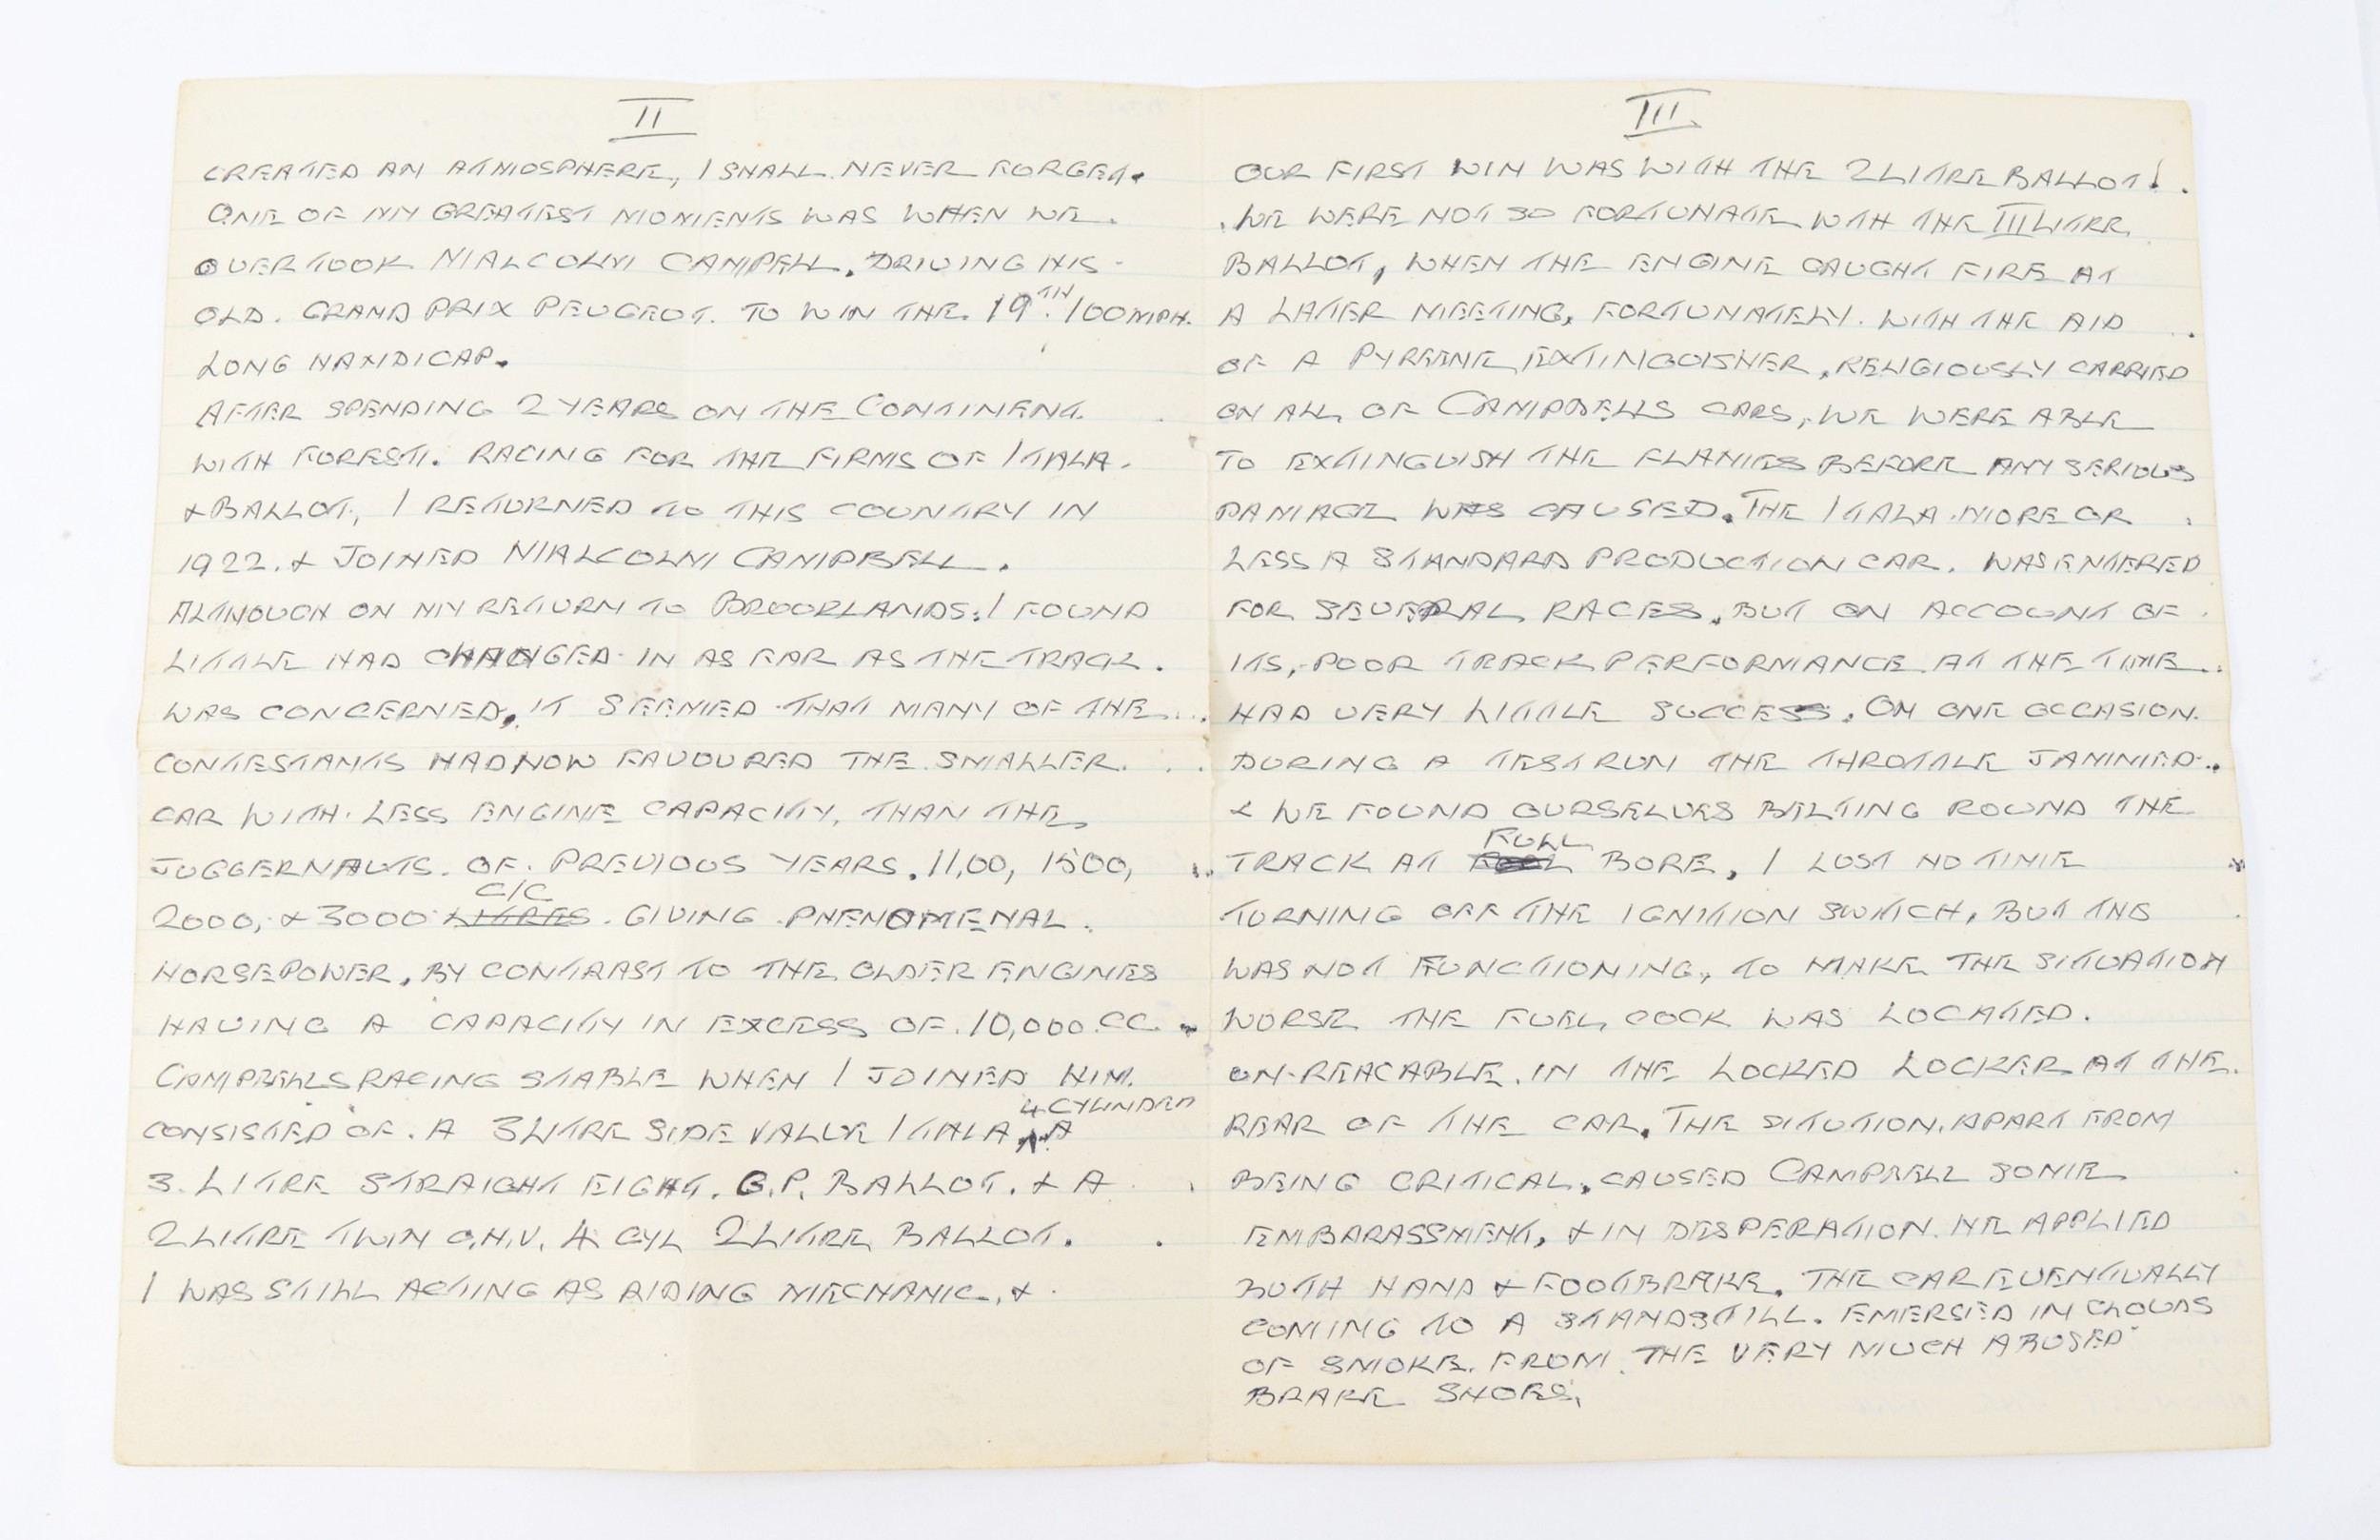 II
CREATED AN ATMOSPHERE, I SHALL NEVER FORGET.
ONE OF MY GREATEST MOMENTS WAS WHEN WE.
OVERTOOK MALCOLM CAMPELL. DRIVING HIS
OLD. GRAND PRIX PEUGEOT. TO WIN THE. 19TH. 100 MPH.
LONG HANDICAP.
AFTER SPENDING 2 YEARS ON THE CONTINENT.
WITH FORESTI. RACING FOR THE FIRMS OF ITALA.
& BALLOT, I RETURNED TO THIS COUNTRY IN
1922. & JOINED MALCOLM CAMPBELL.
ALTHOUGH ON MY RETURN TO BROOKLANDS. I FOUND
LITTLE HAD CHANGED IN AS FAR AS THE TRACK.
WAS CONCERNED, IT SEEMED THAT MANY OF THE...
CONTESTANTS HAD NOW FAVOURED THE SMALLER.
CAR WITH LESS ENGINE CAPACITY, THAN THE
JUGGERNAUTS. OF. PREVIOUS YEARS. 11,00, 1500,
2000, & 3000 LITRES C/C. GIVING PHENOMENAL.
HORSEPOWER. BY CONTRAST TO THE OLDER ENGINES
HAVING A CAPACITY IN EXCESS OF. 10,000. CC.
CAMPBELLS RACING STABLE WHEN I JOINED HIM.
CONSISTED OF. A 3 LITRE SIDE VALVE ITALA 4 CYLINDER. A
3. LITRE STRAIGHT EIGHT. G.P. BALLOT. & A
2 LITRE TWIN O.H.V. 4 CYL 2 LITRE BALLOT.
I WAS STILL ACTING AS RIDING MECHANIC. &
III.
OUR FIRST WIN WAS WITH THE 2 LITRE BALLOT!.
WE WERE NOT SO FORTUNATE WTH THE III LITRR
BALLOT, WHEN THE ENGINE CAUGHT FIRE AT
A LATER MEETING, FORTUNATELY. WITH THE AID
OF A PYREENE EXTINGUISHER, RELIGIOUSLY CARRIED
ON ALL OF CAMPBELLS CARS, WE WERE ABLE
TO EXTINGUISH THE FLAMES BEFORE ANY SERIOUS
DAMAGE WAS CAUSED. THE ITALA MORE OR
LESS A STANDARD PRODUCTION CAR. WAS ENTERED
FOR SEVERAL RACES, BUT ON ACCOUNT OF
ITS, POOR TRACK PERFORMANCE AT THE TIME..
HAD VERY LITTLE SUCCESS. ON ONE OCCASION.
DURING A TEST RUN THE THROTTLE JAMMED..
& WE FOUND OURSELVES BELTING ROUND THE
TRACK AT FULL BORE, I LOST NO TIME
TURNING OFF THE IGNITION SWITCH, BUT THIS
WAS NOT FUNCTIONING, TO MAKE THE SITUATION
WORSE THE FUEL COCK WAS LOCATED.
UN-REACABLE. IN THE LOCKED LOCKER AT THE.
REAR OF THE CAR. THE SITUTION. APART FROM
BEING CRITICAL, CAUSED CAMPBELL SOME
EMBARASSMENT, & IN DESPERATION. HE APPLIED
BOTH HAND & FOOTBRAKE. THE CAR EVENTUALLY
COMING TO A STANDSTILL. EMERSED IN CLOUDS
OF SMOKE. FROM. THE VERY MUCH ABUSED
BRAKE SHOES.